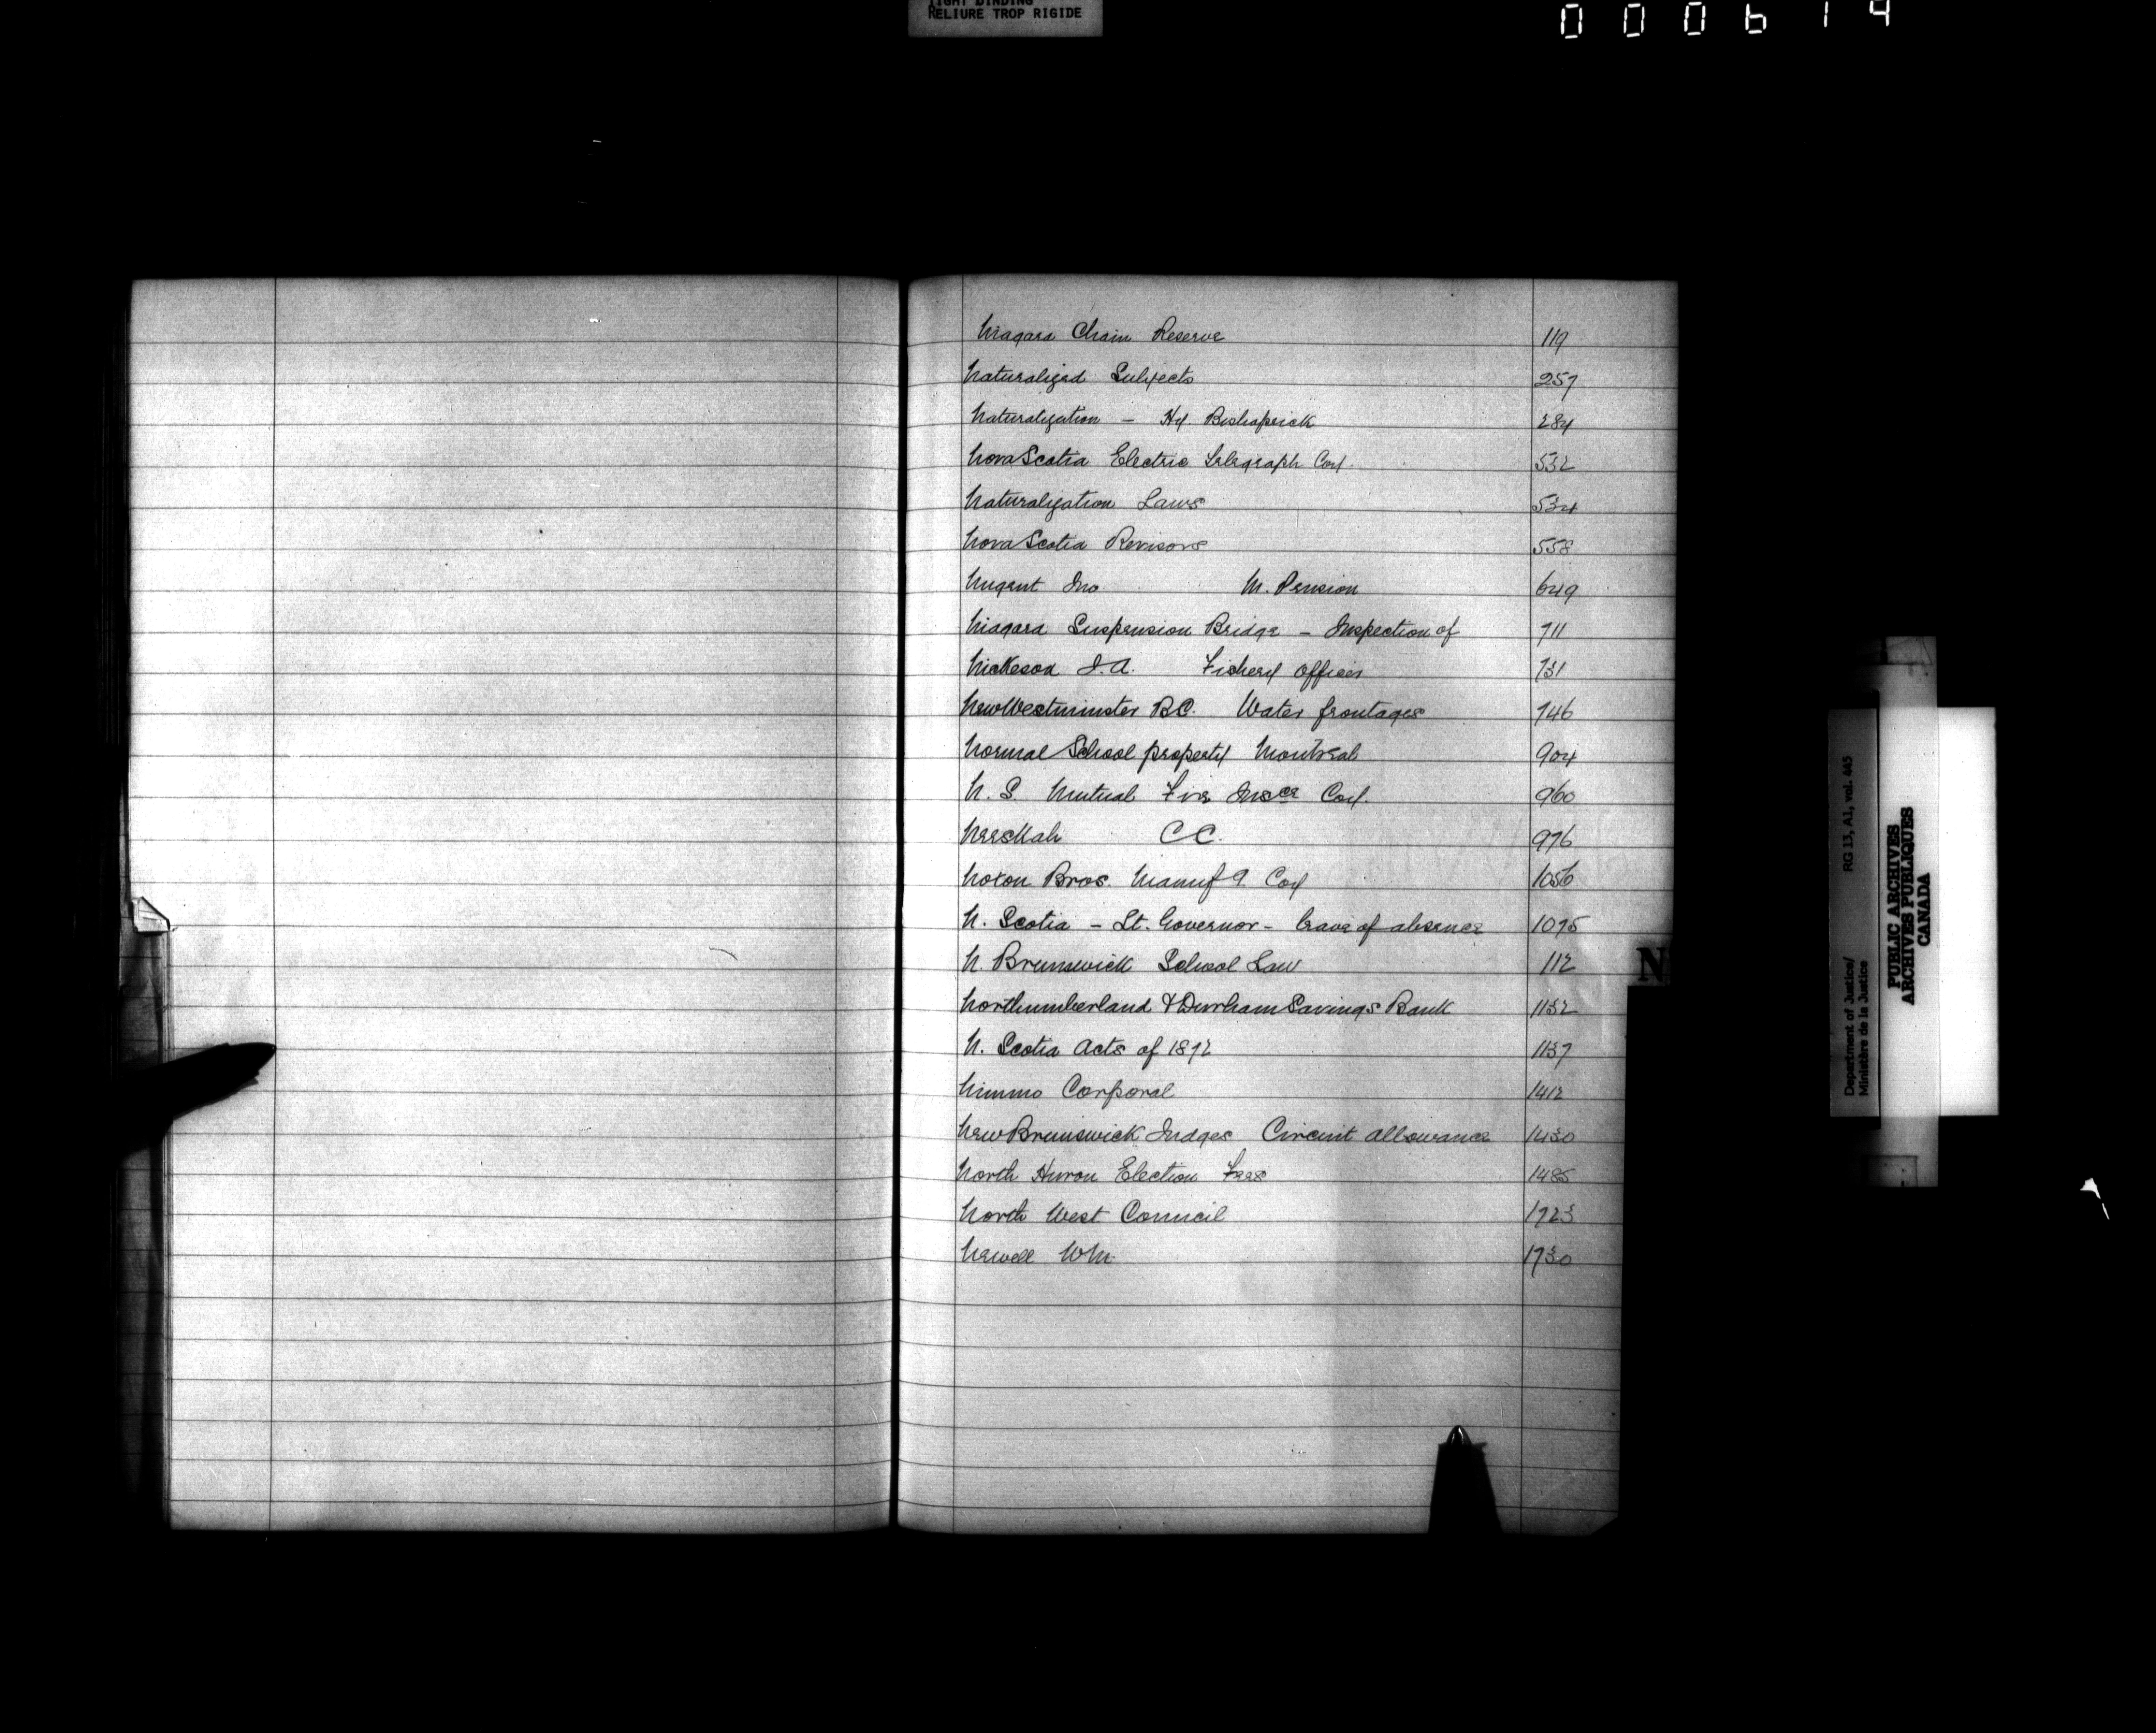 TIGHT BINDING
RELIURE TROP RIGIDE
000614
Niagara Chain Reserve 119
Naturalized Subjects 257
Naturalization - Hy. Bishoprick 284
Nova Scotia Electric Telegraph Coy. 532
Naturalization Laws 534
Nova Scotia Revisors 558
Nugent Jno M. Pension 649
Niagara Suspension Bridge - Inspection of 711
Nickeson J.A. Fishery Officer 731
New Westminster B.C. Water frontages 746
Normal School property Montreal 904
N. S. Mutual Fire Insce Coy. 960
Neeskah C C. 976
Noxon Bros. Manuf g Coy 1056
N. Scotia - Lt. Governor - leave of absence 1075
N. Brunswick School Law 112
Northumberland & Durham Savings Bank 1132
N. Scotia Acts of 1872 1137
Nimmo Corporal 1412
New Brunswick Judges Circuit allowance 1430
North Huron Election Fees 1485
North West Council 1723
Newell Wm. 1730
N
Department of Justice/ RG 13, A1, vol. 445
Ministère de la Justice
PUBLIC ARCHIVES
ARCHIVES PUBLIQUES
CANADA